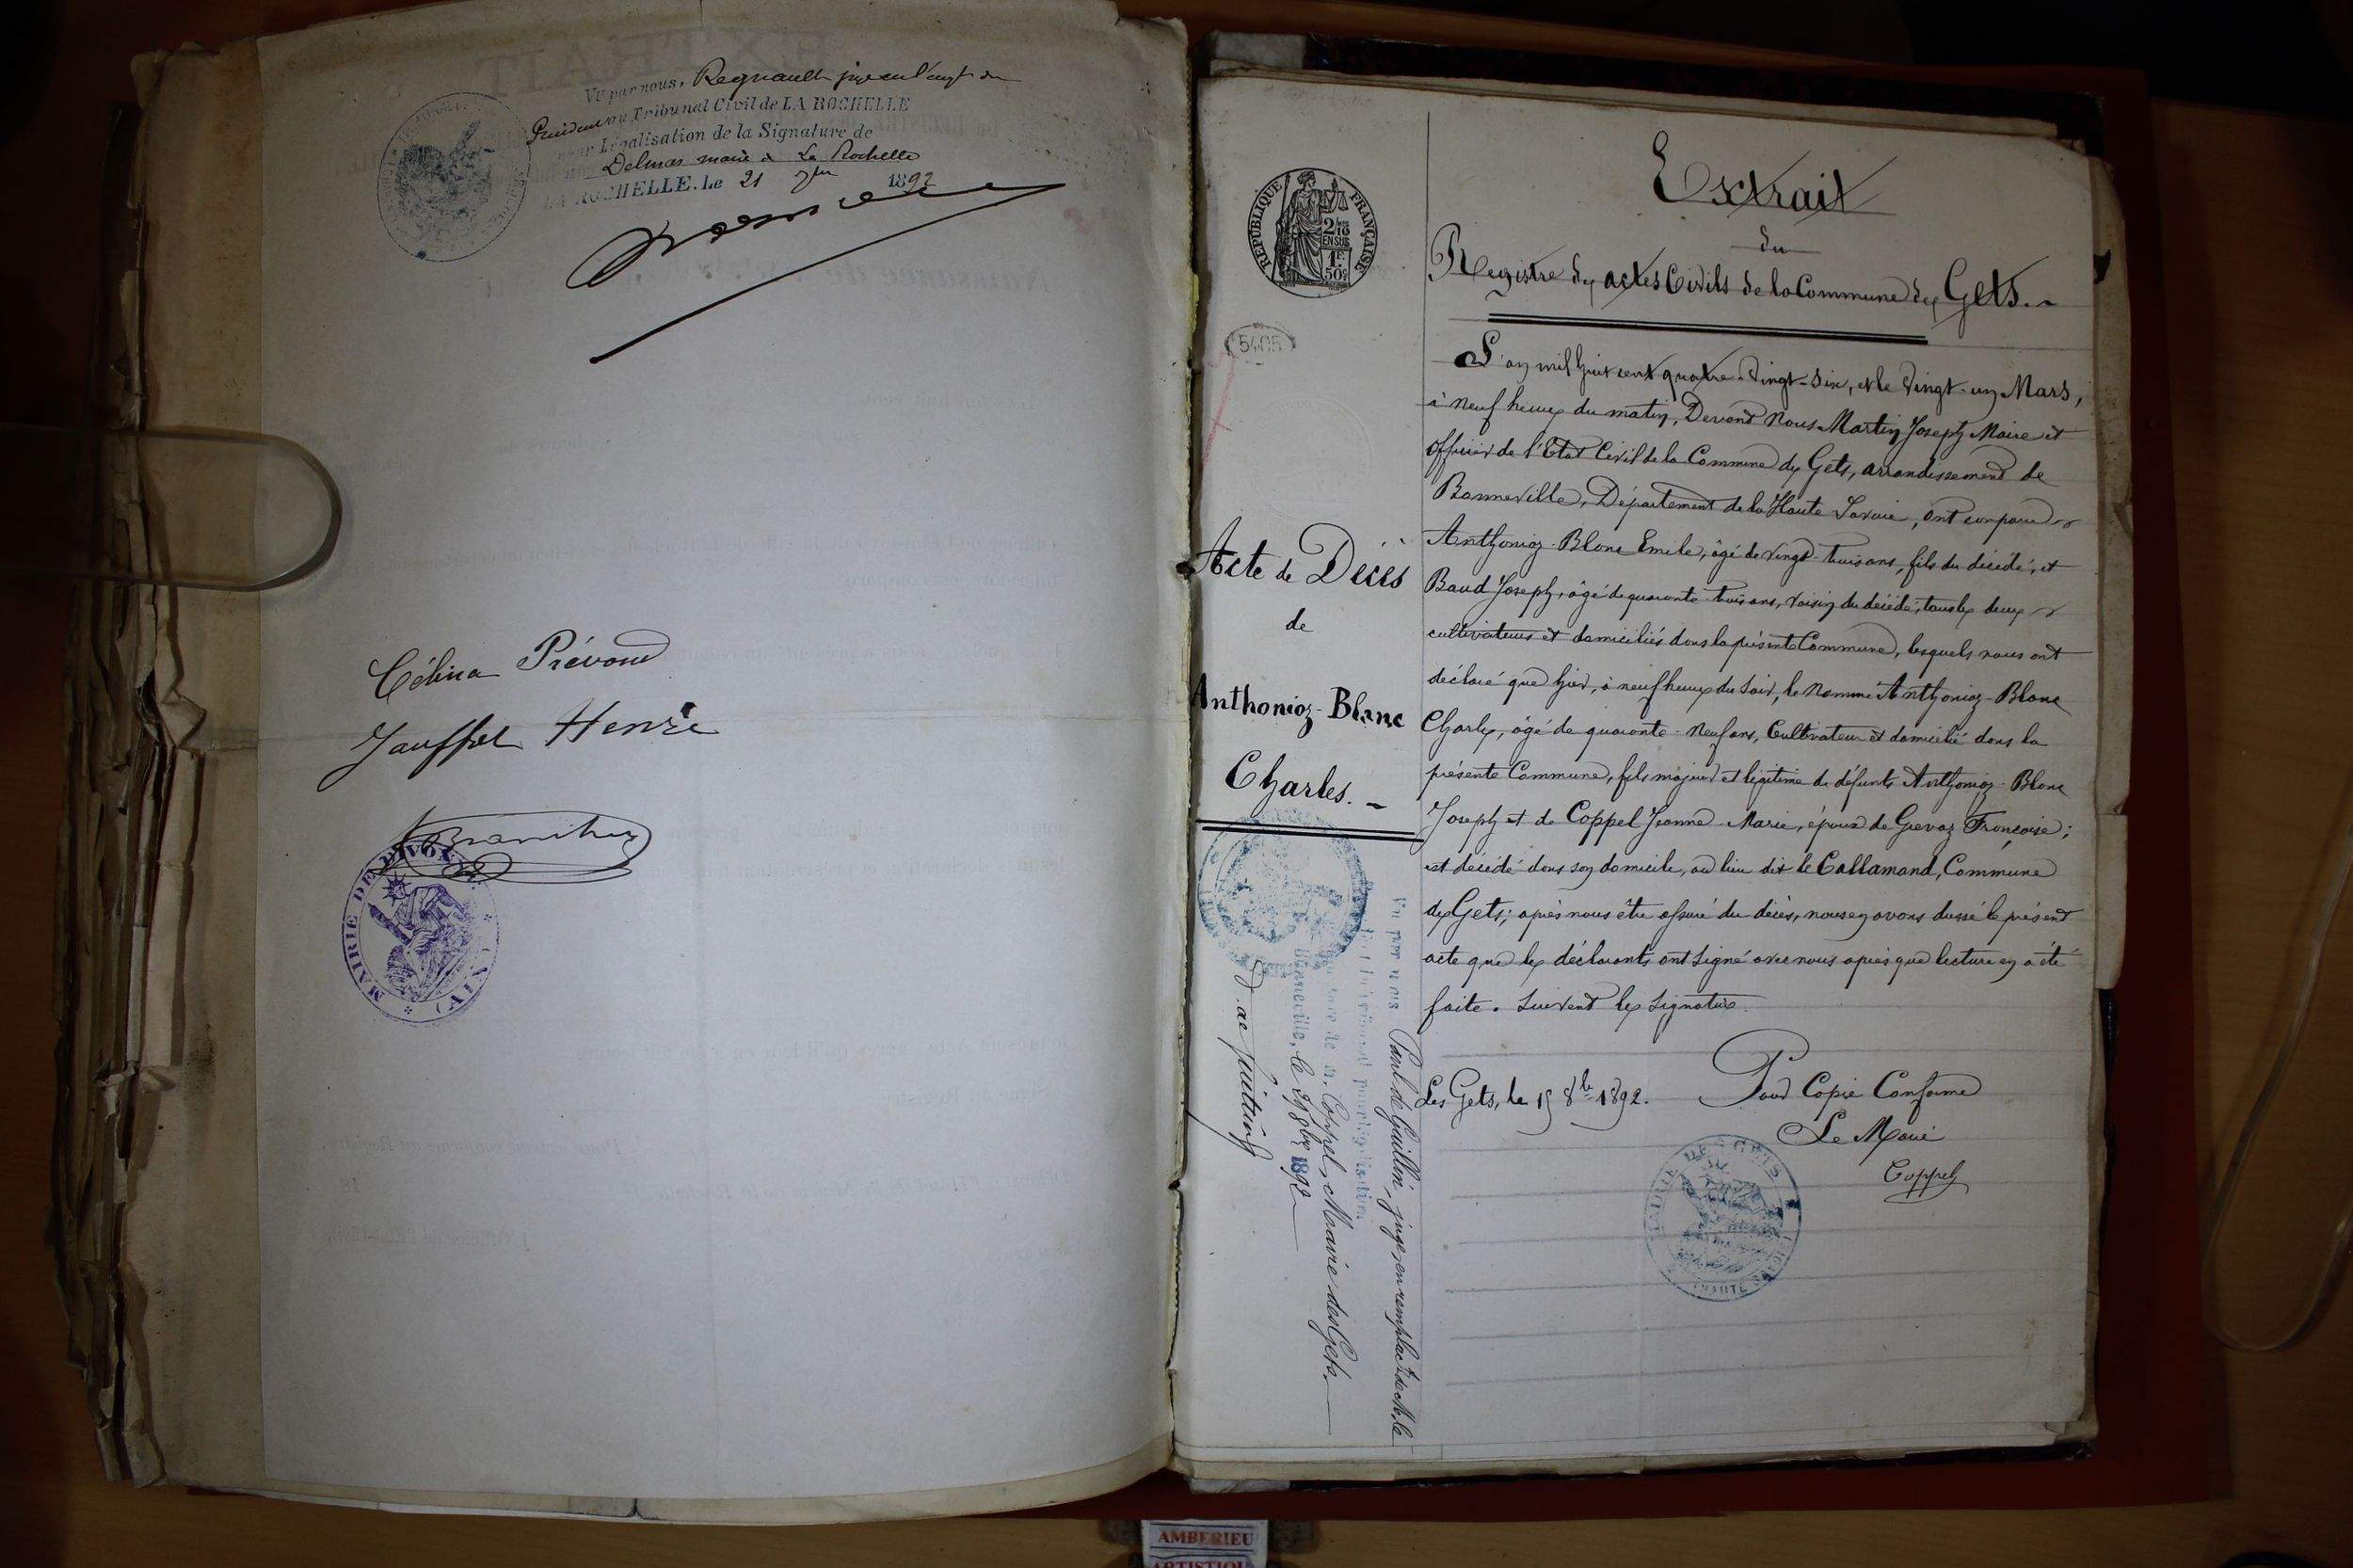 Vu par nous, Regnault juge en l'empt du
Président au Tribunal Civil de LA ROCHELLE
pour Légalisation de la Signature de
Delmas maire de La Rochelle
LA ROCHELLE. Le 21 7bre 1892
Célina Prévond
Jauffret Henri
MAIRIE DE DIVONNE (AIN)
RÉPUBLIQUE FRANÇAISE
2/10 EN SUS
1F 50c
5405
Extrait
du
Registre des actes Civils de la Commune des Gets.
L'an mil huit cent quatre-vingt-six, et le vingt-un Mars,
à neuf heures du matin, Devant Nous Martin Joseph Maire et
officier de l'Etat Civil de la Commune des Gets, arrondissement de
Bonneville, Département de la Haute Savoie, ont comparu
Anthonioz-Blanc Emile, âgé de vingt-trois ans, fils du décédé, et
Baud Joseph, âgé de quarante-trois ans, voisin du décédé, tous les deux
cultivateurs et domiciliés dans la présente Commune, lesquels nous ont
déclaré que hier, à neuf heures du soir, le nommé Anthonioz-Blanc
Charles, âgé de quarante-neuf ans, Cultivateur et domicilié dans la
présente Commune, fils majeur et légitime de défunts Anthonioz-Blanc
Joseph et de Coppel Jeanne-Marie, époux de Grevaz Françoise;
est décédé dans son domicile, au lieu dit le Callamand, Commune
des Gets; après nous être assuré du décès, nous en avons dressé le présent
acte que les déclarants ont signé avec nous après que lecture en a été
faite. Suivent les signatures.
Acte de Décès
de
Anthonioz-Blanc
Charles.
Les Gets, le 15 8bre 1892.
Pour Copie Conforme
Le Maire
Coppel
MAIRIE DES GETS (HAUTE SAVOIE)
Vu par nous Paul de Guillin, juge en remplact de M. le
Prt du tribunal pour légalisation
de la signature de M. Coppel, Maire des Gets.
Bonneville, le 8bre 1892
AMBERIEU
ARTISTIQU